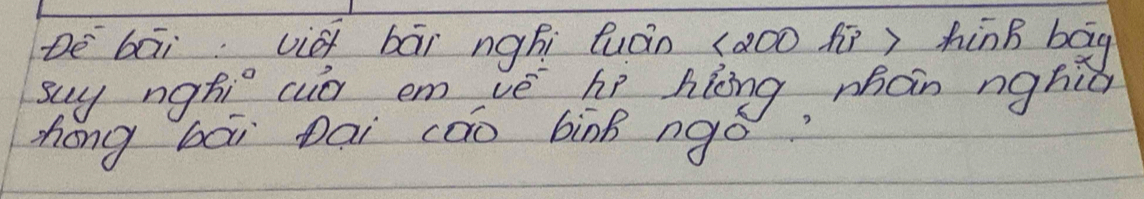 Đề bài : viết bài nghị luận <200 từ> trình bày
suy nghĩ của em về tư tưởng nhân nghĩa
trong bài Đại cáo bình ngô.